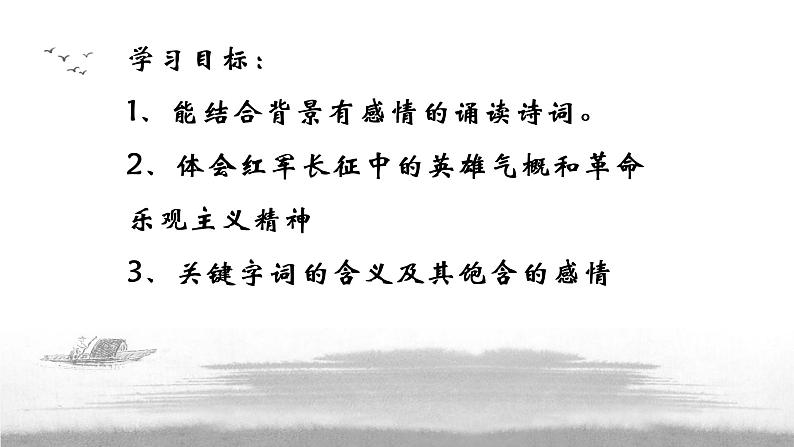 学习目标：
1、能结合背景有感情的诵读诗词。
2、体会红军长征中的英雄气概和革命
乐观主义精神
3、关键字词的含义及其饱含的感情